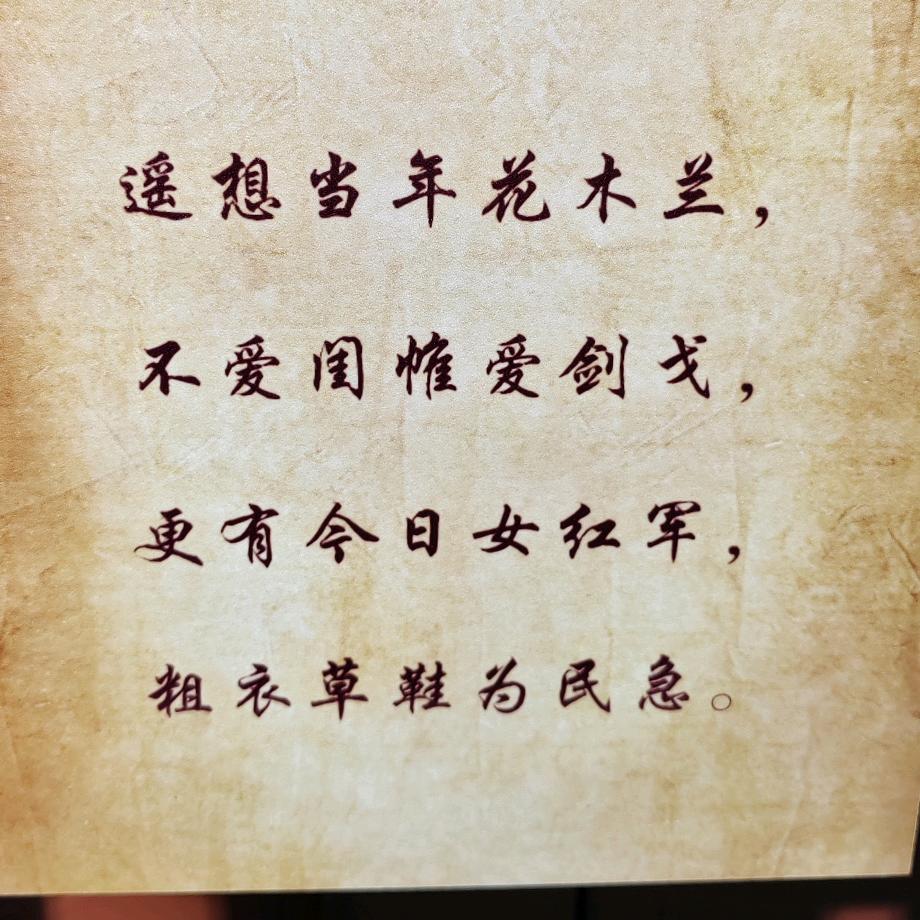 遥想当年花木兰，
不爱闺帷爱剑戈，
更有今日女红军，
粗衣草鞋为民急。